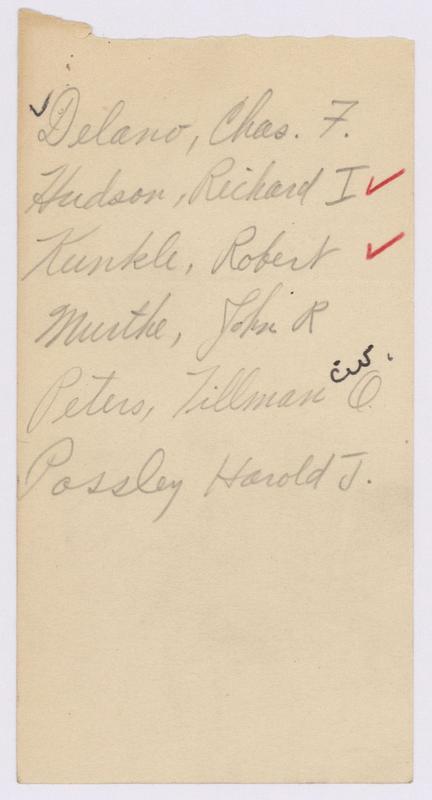 ✓ Delano, Chas. F.
Hudson, Richard I ✓
Kunkle, Robert ✓
Murthe, John R
Peters, Tillman O.
Possley Harold J.